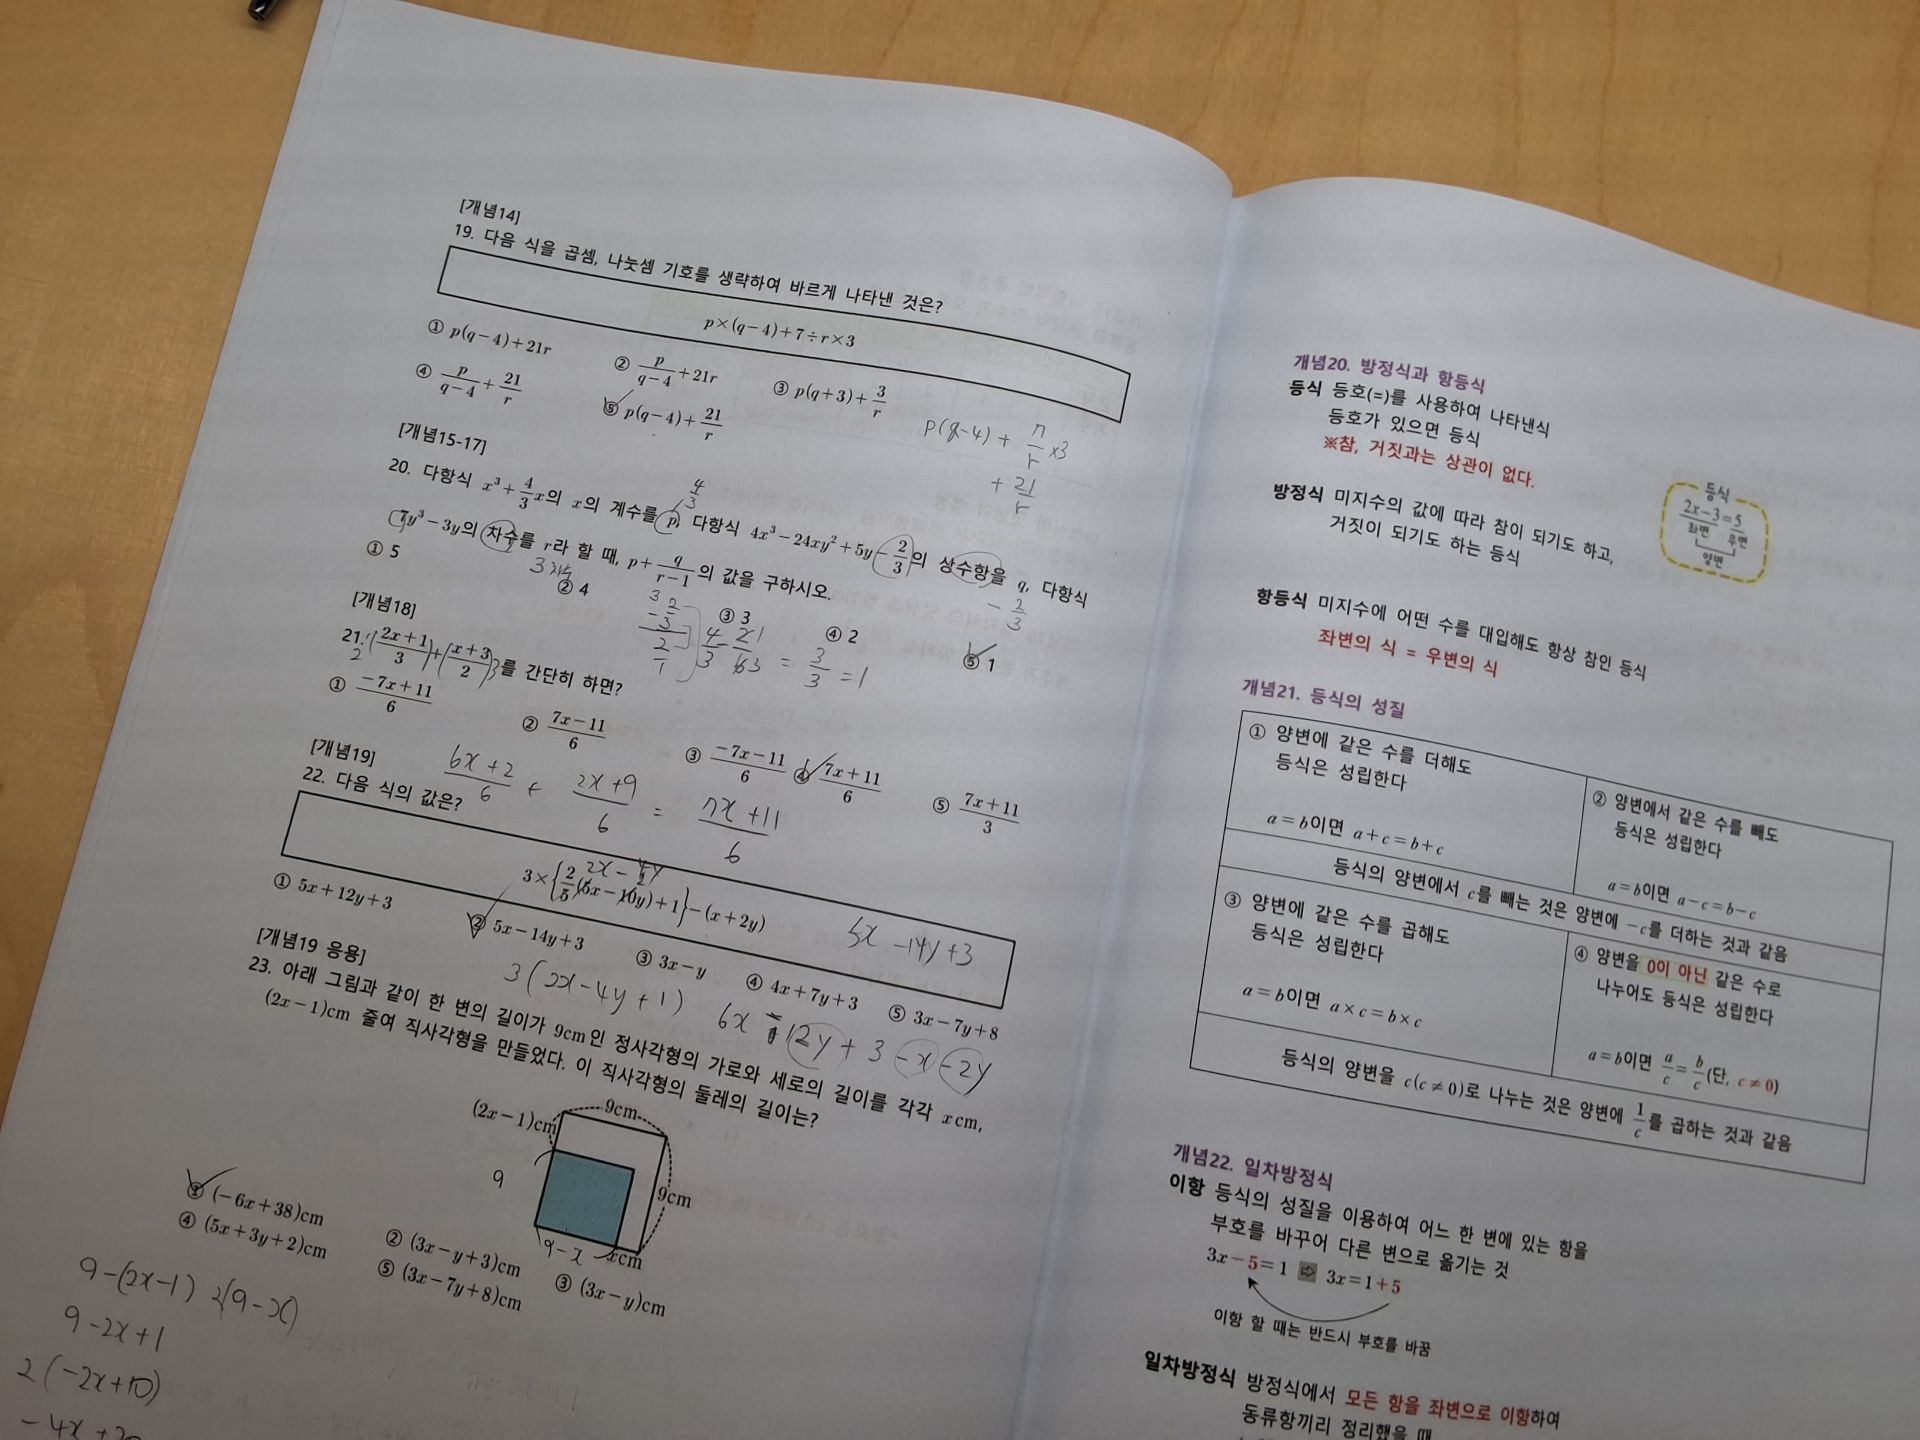 [개념14]
19. 다음 식을 곱셈, 나눗셈 기호를 생략하여 바르게 나타낸 것은?
p×(q−4)+7÷r×3
① p(q−4)+21r
② p/(q−4)+21r
③ p(q+3)+3/r
④ p/(q−4)+21/r
⑤ p(q−4)+21/r
p(q-4) + 7/r ×3
+ 21/r
[개념15-17]
20. 다항식 x³+4/3x의 x의 계수를 p, 다항식 4x³−24xy²+5y−2/3의 상수항을 q, 다항식
7y³−3y의 차수를 r라 할 때, p+q/(r−1)의 값을 구하시오.
4/3
3차
-2/3
① 5
② 4
③ 3
④ 2
⑤ 1
= 3/3 = 1
[개념18]
21. (2x+1)/3+(x+3)/2를 간단히 하면?
① (−7x+11)/6
② (7x−11)/6
③ (−7x−11)/6
④ (7x+11)/6
⑤ (7x+11)/3
(6x+2)/6 + (2x+9)/6 = (7x+11)/6
[개념19]
22. 다음 식의 값은?
3×{2/5(5x−10y)+1}−(x+2y)
2x-4y
5x -14y+3
① 5x+12y+3
② 5x−14y+3
③ 3x−y
④ 4x+7y+3
⑤ 3x−7y+8
3(2x-4y+1)
6x -12y+3 -x -2y
[개념19 응용]
23. 아래 그림과 같이 한 변의 길이가 9cm인 정사각형의 가로와 세로의 길이를 각각 xcm,
(2x−1)cm 줄여 직사각형을 만들었다. 이 직사각형의 둘레의 길이는?
9cm
(2x−1)cm
9
9cm
9-x
xcm
① (−6x+38)cm
② (3x−y+3)cm
③ (3x−y)cm
④ (5x+3y+2)cm
⑤ (3x−7y+8)cm
9-(2x-1) 2(9-x)
9-2x+1
2(-2x+10)
-4x+20
개념20. 방정식과 항등식
등식 등호(=)를 사용하여 나타낸식
등호가 있으면 등식
※참, 거짓과는 상관이 없다.
등식
2x−3=5
좌변 우변
양변
방정식 미지수의 값에 따라 참이 되기도 하고,
거짓이 되기도 하는 등식
항등식 미지수에 어떤 수를 대입해도 항상 참인 등식
좌변의 식 = 우변의 식
개념21. 등식의 성질
① 양변에 같은 수를 더해도
등식은 성립한다
a=b이면 a+c=b+c
② 양변에서 같은 수를 빼도
등식은 성립한다
a=b이면 a−c=b−c
등식의 양변에서 c를 빼는 것은 양변에 −c를 더하는 것과 같음
③ 양변에 같은 수를 곱해도
등식은 성립한다
a=b이면 a×c=b×c
④ 양변을 0이 아닌 같은 수로
나누어도 등식은 성립한다
a=b이면 a/c=b/c(단, c≠0)
등식의 양변을 c(c≠0)로 나누는 것은 양변에 1/c를 곱하는 것과 같음
개념22. 일차방정식
이항 등식의 성질을 이용하여 어느 한 변에 있는 항을
부호를 바꾸어 다른 변으로 옮기는 것
3x−5=1 ⇨ 3x=1+5
이항 할 때는 반드시 부호를 바꿈
일차방정식 방정식에서 모든 항을 좌변으로 이항하여
동류항끼리 정리했을 때